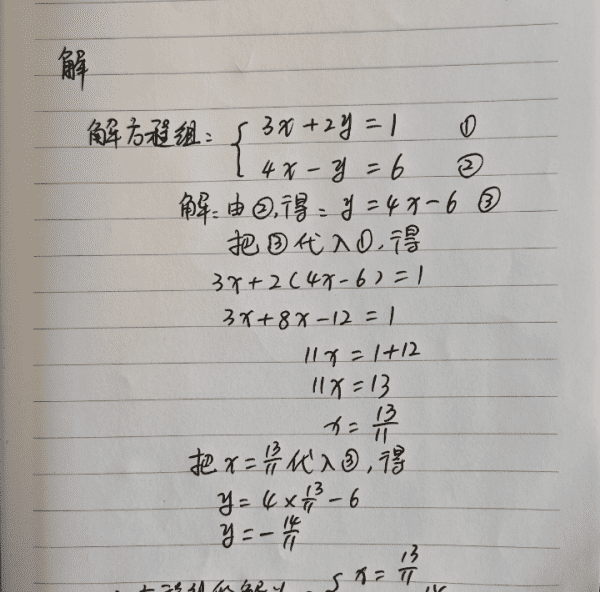 解
解方程组: { 3x+2y=1 ①
4x-y=6 ②
解:由②,得: y=4x-6 ③
把③代入①,得
3x+2(4x-6)=1
3x+8x-12=1
11x=1+12
11x=13
x=13/11
把x=13/11代入③,得
y=4×13/11-6
y=-14/11
方程组的解为 { x=13/11